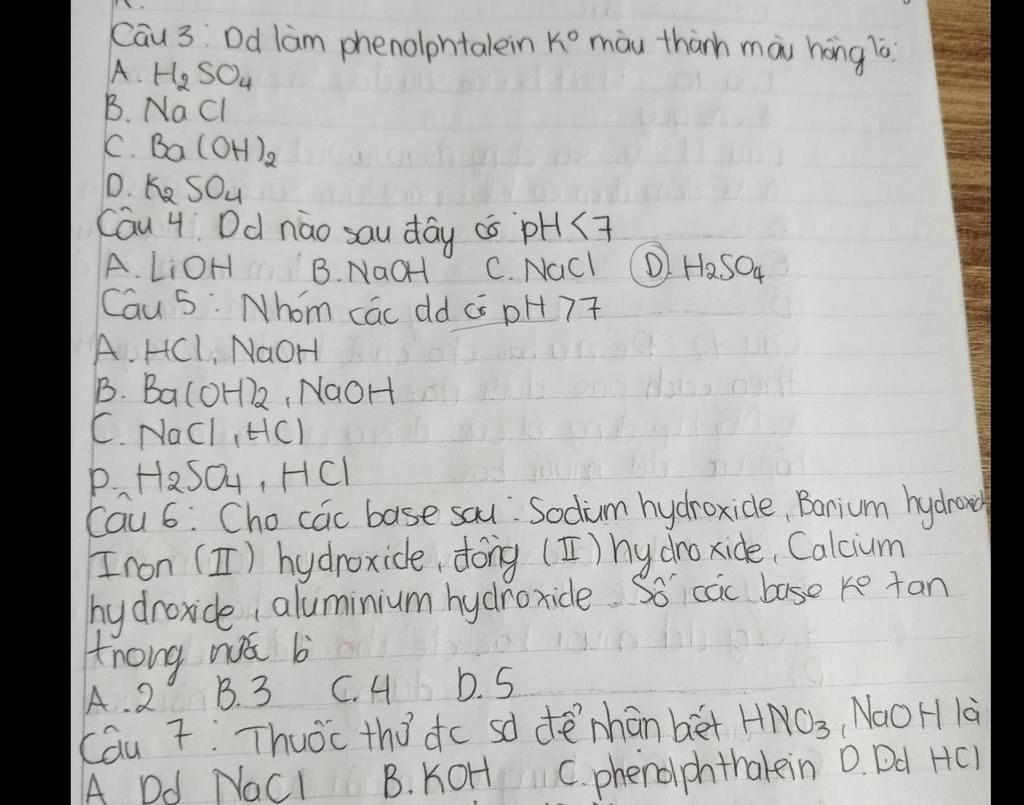 Câu 3: Dd làm phenolphtalein Kº màu thành màu hồng là:
A. H₂SO₄
B. NaCl
C. Ba(OH)₂
D. K₂SO₄
Câu 4: Dd nào sau đây có pH<7
A. LiOH B. NaOH C. NaCl D. H₂SO₄
Câu 5: Nhóm các dd có pH>7
A. HCl, NaOH
B. Ba(OH)₂, NaOH
C. NaCl, HCl
D. H₂SO₄, HCl
Câu 6: Cho các base sau: Sodium hydroxide, Barium hydroxide
Iron (II) hydroxide, đồng (II) hydroxide, Calcium
hydroxide, aluminium hydroxide. Số các base Kº tan
trong nước là
A. 2 B. 3 C. 4 D. 5
Câu 7: Thuốc thử đc sd để nhân biết HNO₃, NaOH là
A Dd NaCl B. KOH C. phenolphthalein D. Dd HCl